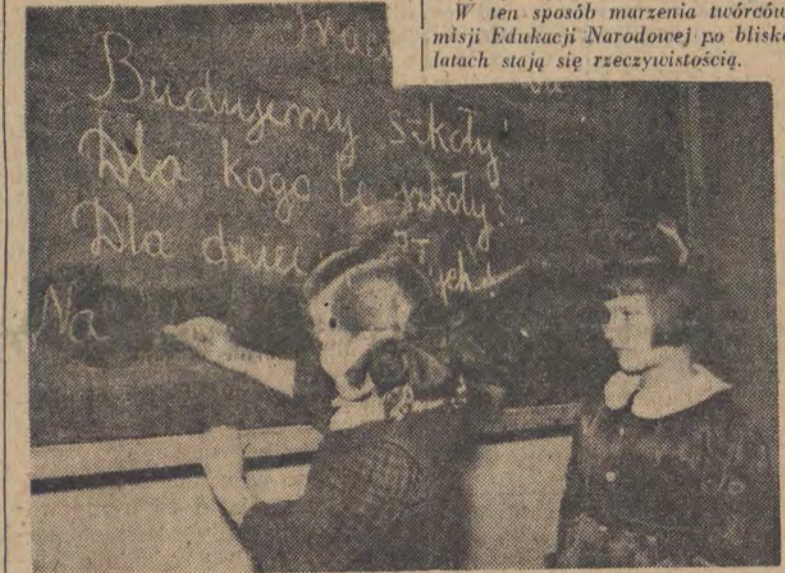 W ten sposób marzenia twórców
misji Edukacji Narodowej po blisko
latach stają się rzeczywistością.
Budujemy szkoły!
Dla kogo te szkoły?
Dla dzieci
Na